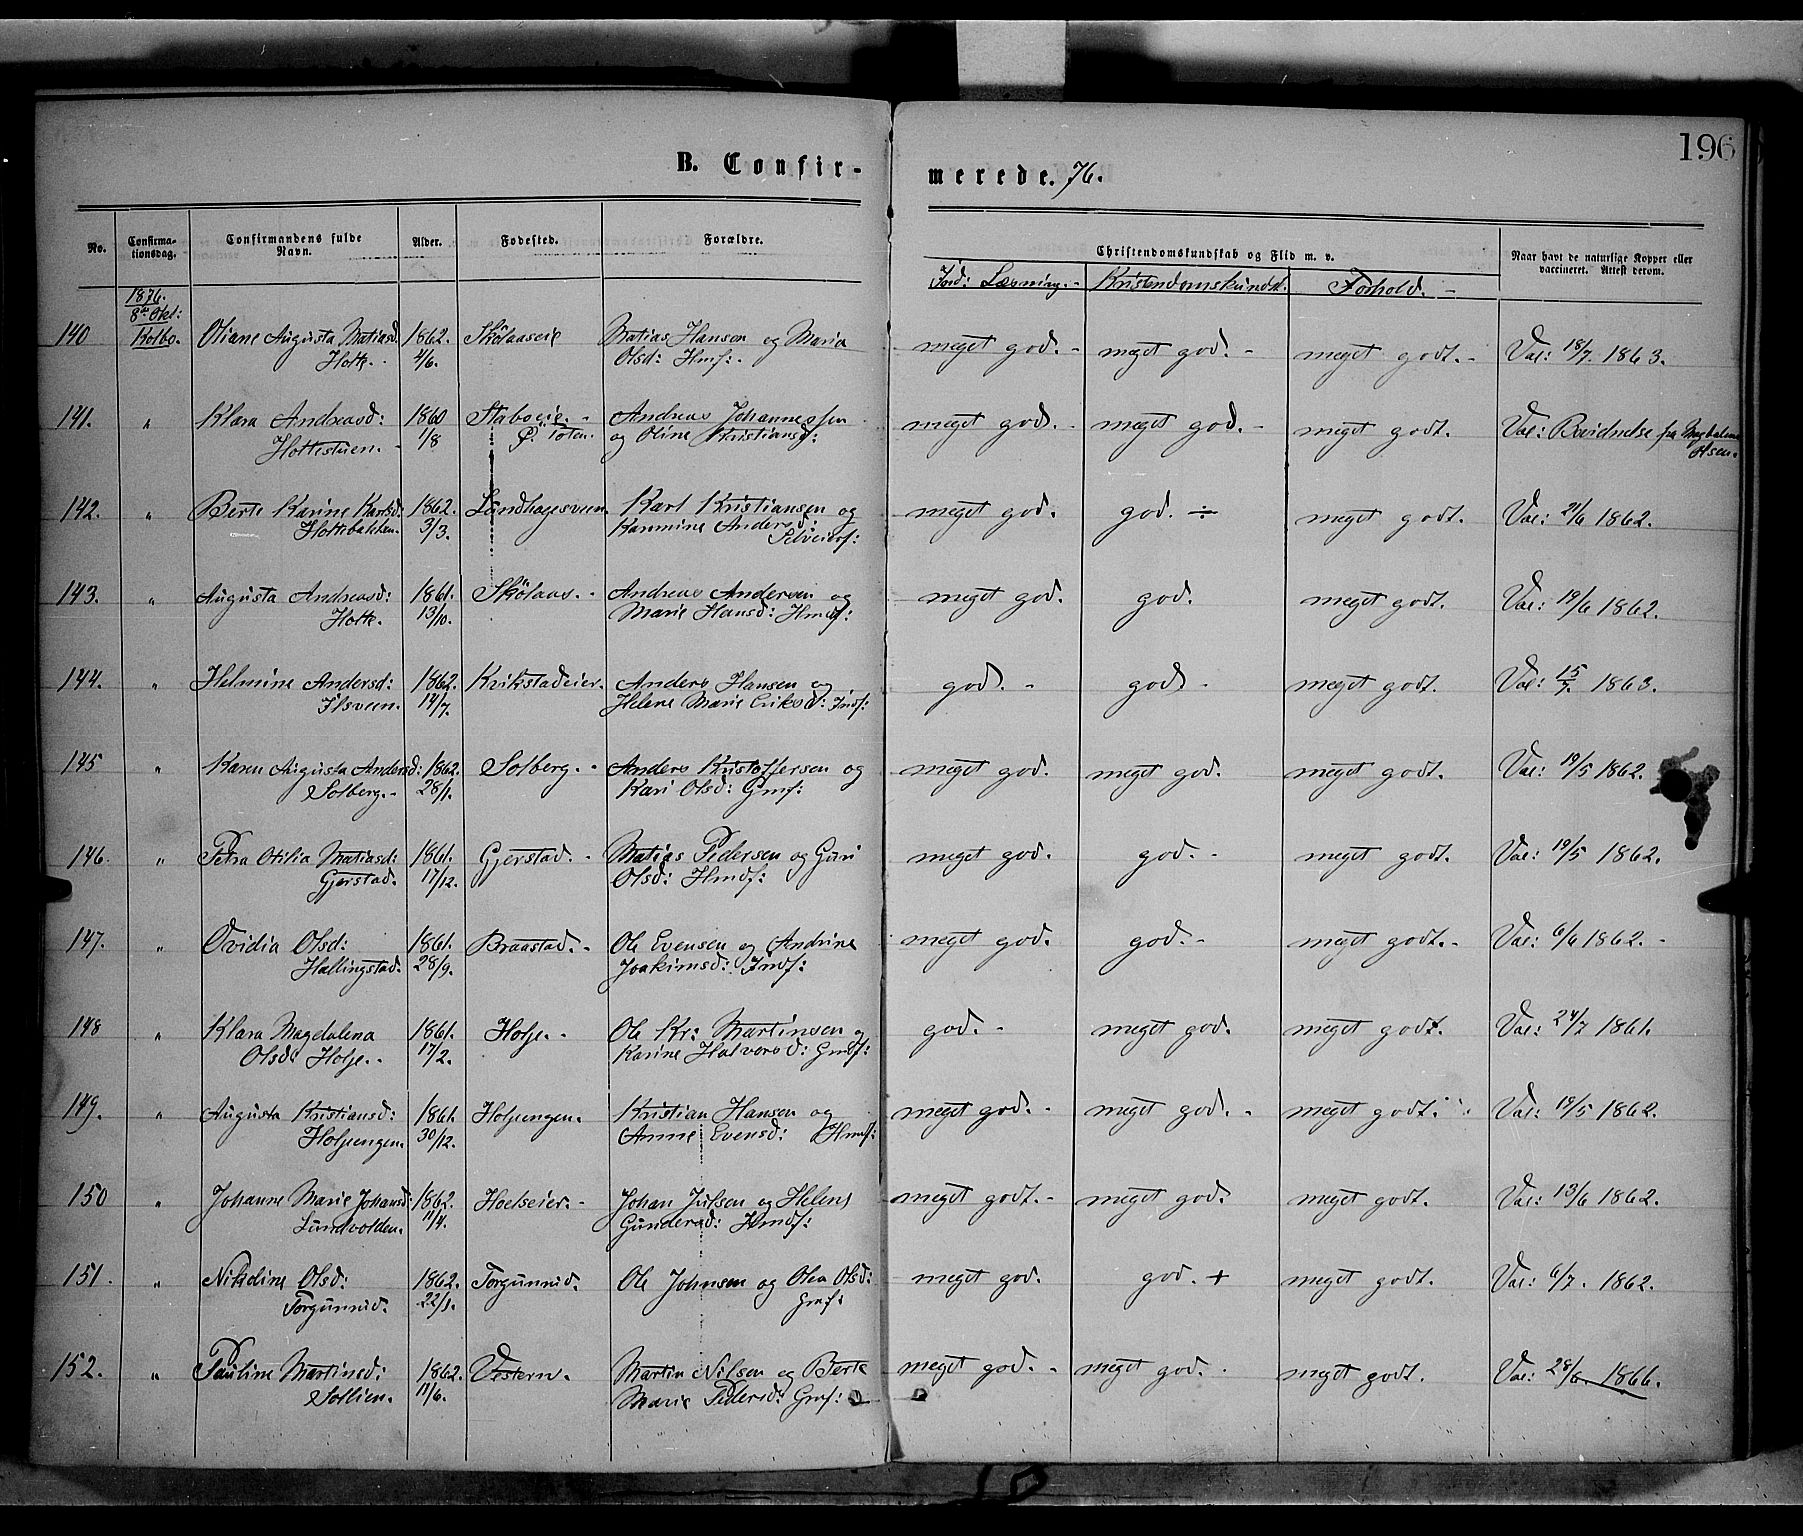 196
B. Confir-
merede. 76.
No.
Confirma-
tionsdag.
Confirmandens fulde
Navn.
Alder.
Fødested.
Forældre.
Christendomskundskab og Flid m. v.
Naar havt de naturlige Kopper eller
vaccineret. Attest derom.
Læsning. - Kristendomskundsk. Forhold. -
1876.
8de Okt:
140 Kolbo. Oliane Augusta Matiasd. 1862. Skölaaseie Matias Hansen og Maria meget god. - meget god. - meget godt. - Vac: 18/7. 1863.
Hotte. - 4/6. Olsd:
141. " Klara Andreasd: 1860 Staboeie. - Andreas Johannessen meget god. - meget god. - meget godt. Vac: Bevidnelse fra Magdalena
Hottestuen. - 1/8 Ø. Toten. og Oline Kristiansd: Olsen.
142. " Berte Karine Karlsd. 1862. Karl Kristiansen og meget god. god. ÷ meget godt. Vac: 21/6 1862.
Hottebakken. 3/3. Andersd:
143. " Augusta Andreasd: 1861. Skölaas. - Andreas Andersen og meget god. god. meget godt. Vac: 19/6 1862.
Hotte. 13/10. Marie Hansd: Hmdf:
144. " Helmine Andersd: 1862. Kvikstadeier. Anders Hansen og god. - god - meget godt. Vac: 15/7. 1863.
14/7. Helene Marie Eriksd: Indf:
145 " Karen Augusta Andersd: 1862. Solberg. - Anders Kristoffersen og meget god. meget god. meget godt. Vac: 19/5 1862.
Solberg. - 28/1. Kari Olsd: Gmf:
146. " Petra Otilia Matiasd: 1861. Gjerstad. - Matias Pedersen og Guri meget god. god. - meget godt. Vac: 19/5 1862.
Gjerstad. 17/12. Olsd: Hmdf:
147. " Ovidia Olsd: 1861. Braastad. - Ole Evensen og Andrine meget god. god. - meget godt. - Vac: 6/6 1862. -
Hallingstad. 28/9. Joakimsd: Indf:
148 " Klara Magdalena 1861. Holje. - Ole Kr: Martinsen og god. - meget god. meget godt. Vac: 24/7 1861.
Olsd: Holje. - 17/2. Karine Halvorsd: Gmdf:
149. " Augusta Kristiansd: 1861. Holjeengen. Kristian Hansen og meget god. - meget god. - meget godt. Vac: 19/5 1862.
Holjeengen. 30/12. Anne Evensd: Hmdf:
150 " Johanne Marie Johansd: 1862. Hoelseier. - Johan Julsen og Helene meget godt. - meget god meget godt. Vac: 13/6 1862.
Lundvolden. 11/4. Gundersd: Hmdf:
151. " Nikoline Olsd: 1862. Torgunrud. Ole Johnsen og Olea Olsd: meget god. god. + meget godt. Vac: 6/7. 1862.
Torgunrud. 22/1. Gmf:
152. " Pauline Martinsd: 1862. Vestern. Martin Nilsen og Berte meget god. - meget god. meget godt. Vac: 28/6. 1866.
Sollien. 11/6. Marie Pedersd: Gmf: